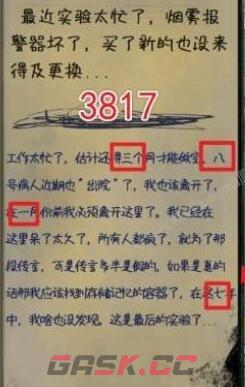 最近实验太忙了，烟雾报
警器坏了，买了新的也没来
得及更换...
3817
工作太忙了，估计还得三个月才能做完，八
号病人近期也"出院"了，我也该离开了，
在一月份前我必须离开这里了。我已经在
这里呆了太久了，所有人都疯了，就为了那
段传言，可是传言多半是假的。如果是真的
话那我应该找到存储记忆的容器了，在这七年
中，我啥也没发现。这是最后的实验了...
GASK.CC